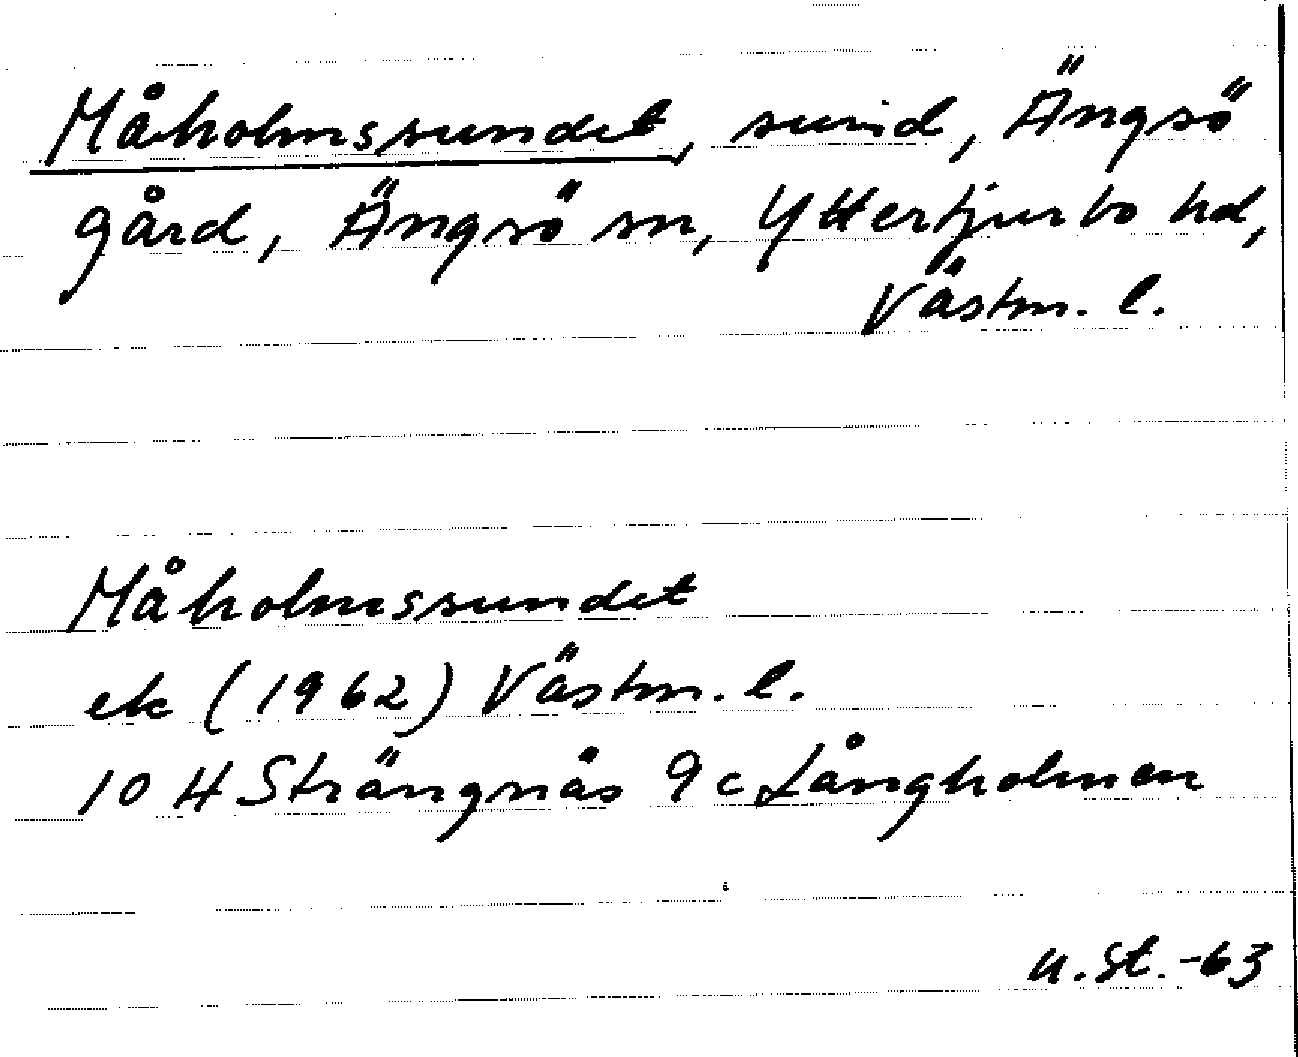 Måholmssundet, sund, Ängsö
gård, Ängsö sn, Yttertjurbo hd,
Västm. l.
Måholmssundet
ek (1962) Västm. l.
10 H Strängnäs 9c Långholmen
u.st.-63